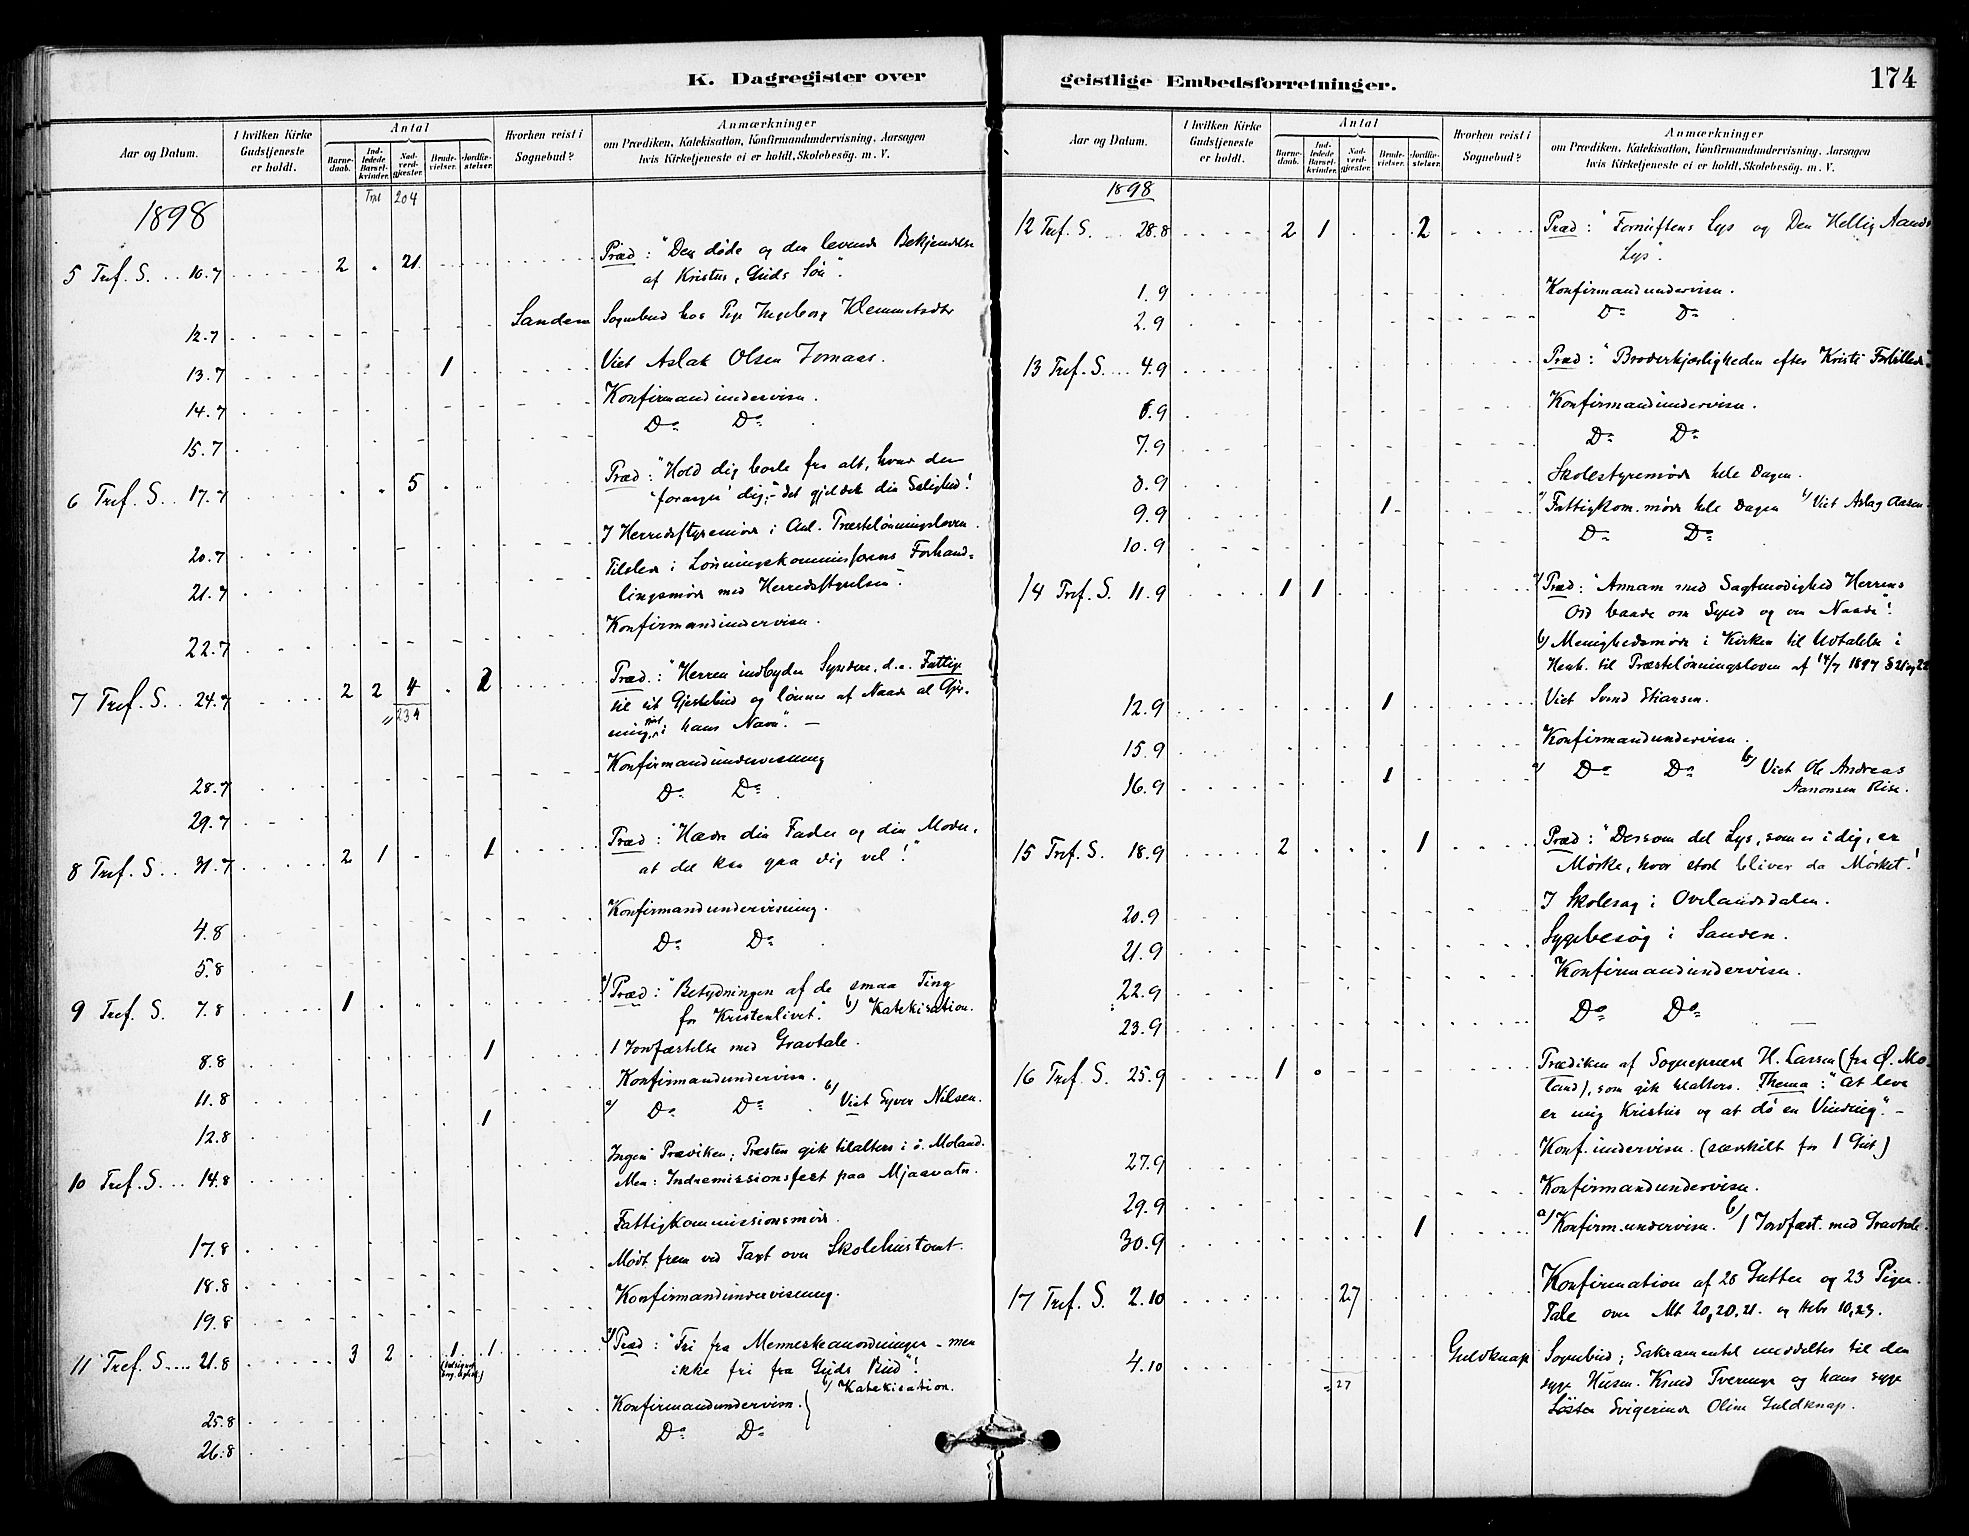 K. Dagregister over
Aar og Datum.
I hvilken Kirke Gudstjeneste er holdt.
Antal
Barnedaab.
Indledede Barselkvinder.
Nadverdgjester.
Brudevielser.
Jordfæstelser.
Hvorhen reist i Sognebud?
Anmærkninger
om Prædiken, Katekisation, Konfirmandundervisning, Aarsagen
hvis Kirketjeneste ei er holdt, Skolebesög. m. V.
204
1898
5 Tref. S. 10.7 2 21 Præd: "Den døde og den levende Bekjendelse
af Kristus, Guds Søn".
12.7 Sanden Sognebud hos Pige Ingeborg
13.7 1 Viet Aslak Olsen Jomaas.
14.7 Konfirmandundervisn.
15.7 Do Do
6 Tref. S. 17.7 5 Præd: "Hold dig borte fra alt, hvad der
"forarger" dig; det gjelder din Salighed!
20.7 I Herredsstyremøde i Anl. Præstelønningsloven.
21.7 Tilstede i Lønningskommissionens Forhand-
lingsmøde med Herredsstyrelsen.
22.7 Konfirmandundervisn.
7 Tref. S. 24.7 2 2 4 2 Præd.: "Herren indbyder Syndere, d.e. Fattige
234 til sit Gjestebud og lønner af Naade al Gjer-
ning i hans Navn". —
28.7 Konfirmandundervisning
29.7 Do Do
8 Tref. S. 31.7 2 1 1 Præd: "Hædre din Fader og din Moder,
at det kan gaa dig vel!"
4.8 Konfirmandundervisning.
5.8 Do Do
9 Tref. S. 7.8 1 a) Præd: "Betydningen af de smaa Ting
for Kristenlivet". b) Katekisation.
8.8 1 1 Jordfæstelse med Gravtale.
11.8 Konfirmandundervisn.
12.8 1 a) Do Do b) Viet Syver Nilsen.
10 Tref. S. 14.8 Ingen Prædiken; Præsten gik tilalters i ø. Moland.
Men: Indremissionsfest paa Mjaavatn.
17.8 Fattigkommissionsmøde.
18.8 Mødt frem ved Taxt over Skolehustomt.
19.8 Konfirmandundervisning.
11 Tref. S. 21.8 3 2 1 1 a) Præd: "Fri fra Menneskeanordninger – men
ikke fri fra Guds Bud"!
b) Katekisation.
25.8 Konfirmandundervisn.
26.8 Do Do
geistlige Embedsforretninger.
174
Aar og Datum.
I hvilken Kirke Gudstjeneste er holdt.
Antal
Barnedaab.
Indledede Barselkvinder.
Nadverdgjester.
Brudevielser.
Jordfæstelser.
Hvorhen reist i Sognebud?
Anmærkninger
om Prædiken, Katekisation, Konfirmandundervisning, Aarsagen
hvis Kirketjeneste ei er holdt, Skolebesög. m. V.
1898
12 Tref. S. 28.8 2 1 2 Præd: "Fornuftens Lys og Den Hellig Aands
Lys".
1.9 Konfirmandundervisn.
2.9 Do Do
13 Tref. S. 4.9 Præd: "Broderkjærligheden efter Kristi Forbillede".
6.9 Konfirmandundervisn.
7.9 Do Do
8.9 Skolestyremøde hele Dagen.
9.9 1 a) Fattigkom. møde hele Dagen b) Viet Aslag Aasen
10.9 Do Do
14 Tref. S. 11.9 1 1 a) Præd: "Annam med Sagtmodighed Herrens
Ord baade om Synd og om Naade".
b) Menighedsmøde i Kirken til Udtalelse i
Henh. til Præstelønningsloven af 14/7 1897 § 21 og 22
12.9 1 Viet Svend
15.9 Konfirmandundervisn.
16.9 1 a) Do Do b) Viet Ole Andreas
Aanonsen Rise.
15 Tref. S. 18.9 2 1 Præd: "Dersom det Lys, som er i dig, er
Mørke, hvor stort bliver da Mørket"!
20.9 I Skolesag i Ovelandsdalen.
21.9 Sygebesøg i Sanden.
22.9 Konfirmandundervisn.
23.9 Do Do
16 Tref. S. 25.9 1 Prædiken af Sognepræst H. Larsen (fra Ø. Mo-
land), som gik tilalters. Thema: "At leve
er mig Kristus og at dø en Vinding". –
27.9 Konf.undervisn. (særskilt for 1 Gut)
29.9 Konfirmandundervisn.
30.9 1 a) Konfirm.undervisn. b) 1 Jordfæst. med Gravtale.
17 Tref. S. 2.10 27 Konfirmation af 26 Gutter og 23 Piger.
Tale over Mt 20,20,21. og Hebr 10,23.
4.10 Guldknap Sognebud; Sakramentet meddeltes til den
= 27 syge Husm. Knud Tveringe og hans syge
Svigerinde Oline Guldknap.